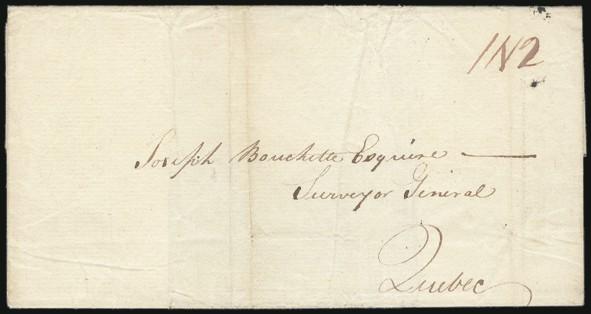 1N2
Joseph Bouchette Esquire
Surveyor General
Quebec